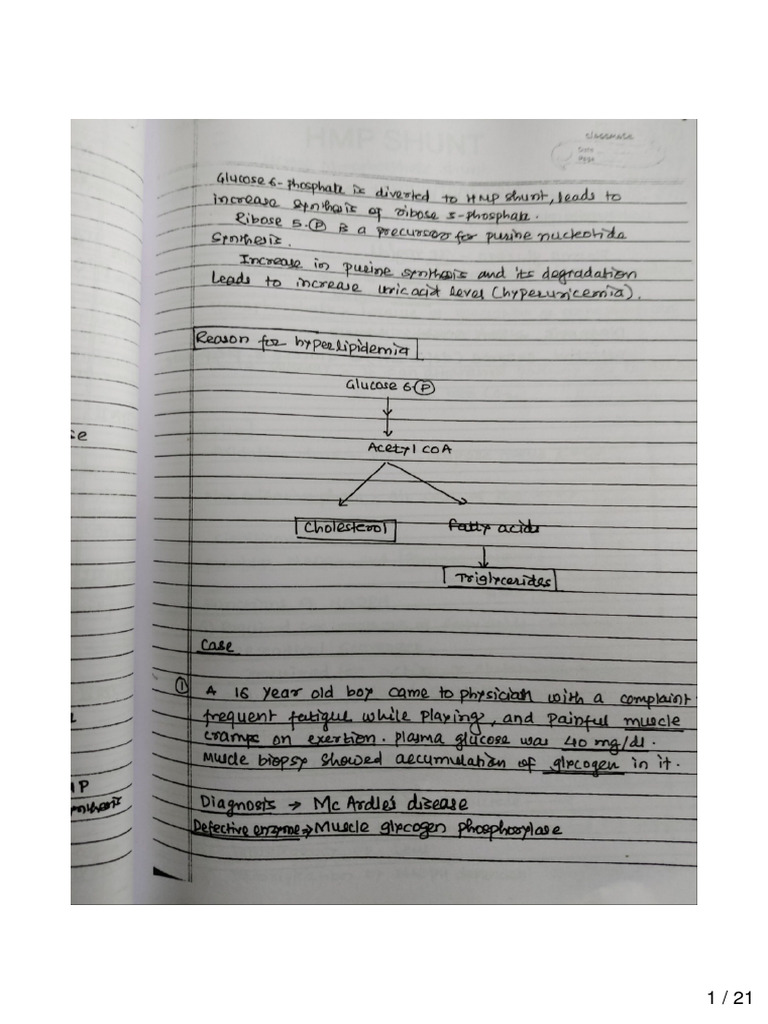 HMP SHUNT
classmate
Date
Page
Glucose 6-phosphate is diverted to HMP shunt, leads to
increase synthesis of ribose 5-phosphate.
Ribose 5-(P) is a precursor for purine nucleotide
synthesis.
Increase in purine synthesis and its degradation
Leads to increase uric acid level (hyperuricemia).
Reason for hyperlipidemia
Glucose 6-(P)
Acetyl coA
Cholesterol
fatty acids
Triglycerides
se
Case
① A 16 year old boy came to physician with a complaint
frequent fatigue while playing, and painful muscle
cramps on exertion. plasma glucose was 40 mg/dl.
Muscle biopsy showed accumulation of glycogen in it.
MP
Diagnosis → Mc Ardle's disease
Defective enzyme → Muscle glycogen phosphorylase
1 / 21